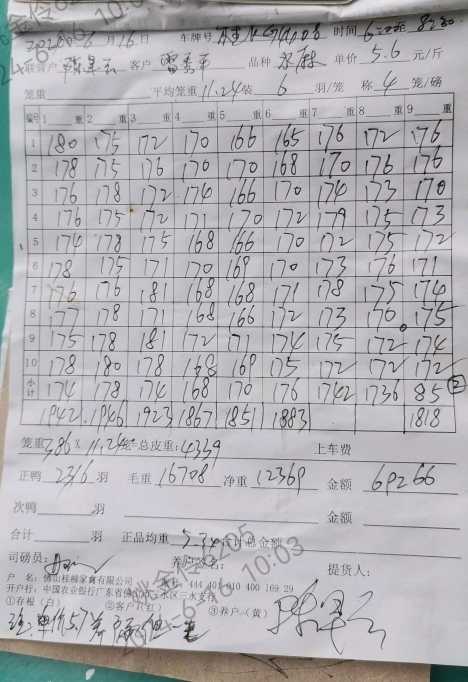 2026年6月16日 车牌号 时间
联营户 陈旱云 客户 品种 单价 5.6 元/斤
笼重 平均笼重 11.24 装 6 羽/笼 称 4 笼/磅
编号 1 重 2 重 3 重 4 重 5 重 6 重 7 重 8 重 9 重
1 180 175 172 170 166 165 176 172 176
2 178 175 176 170 170 168 170 176 176
3 176 178 172 174 166 170 174 173 170
4 176 175 172 171 170 172 179 175 173
5 174 178 175 168 166 170 172 175 172
6 178 175 171 170 169 170 173 176 171
7 176 176 181 168 168 171 178 175 174
8 177 178 171 168 166 172 173 170 175
9 175 178 181 172 171 174 175 172 174
10 178 180 178 168 169 175 172 172 172
小计 174 178 174 168 170 176 1742 1736 85 ②
1942 1946 1923 1867 1851 1883 1818
笼重 386 × 11.24 = 总皮重: 4339 上车费
正鸭 2316 羽 毛重 16708 净重 12369 金额 69266
次鸭 羽 金额
合计 羽 正品均重 5.34 合计总金额
司磅员: 养户签名: 提货人:
户 名: 佛山桂柳家禽有限公司 账号: 444 401 010 400 169 29
开户行: 中国农业银行广东省佛山三水区三水支行
①存根(白) ②客户(红) ③养户(黄)
注: 单价5.7